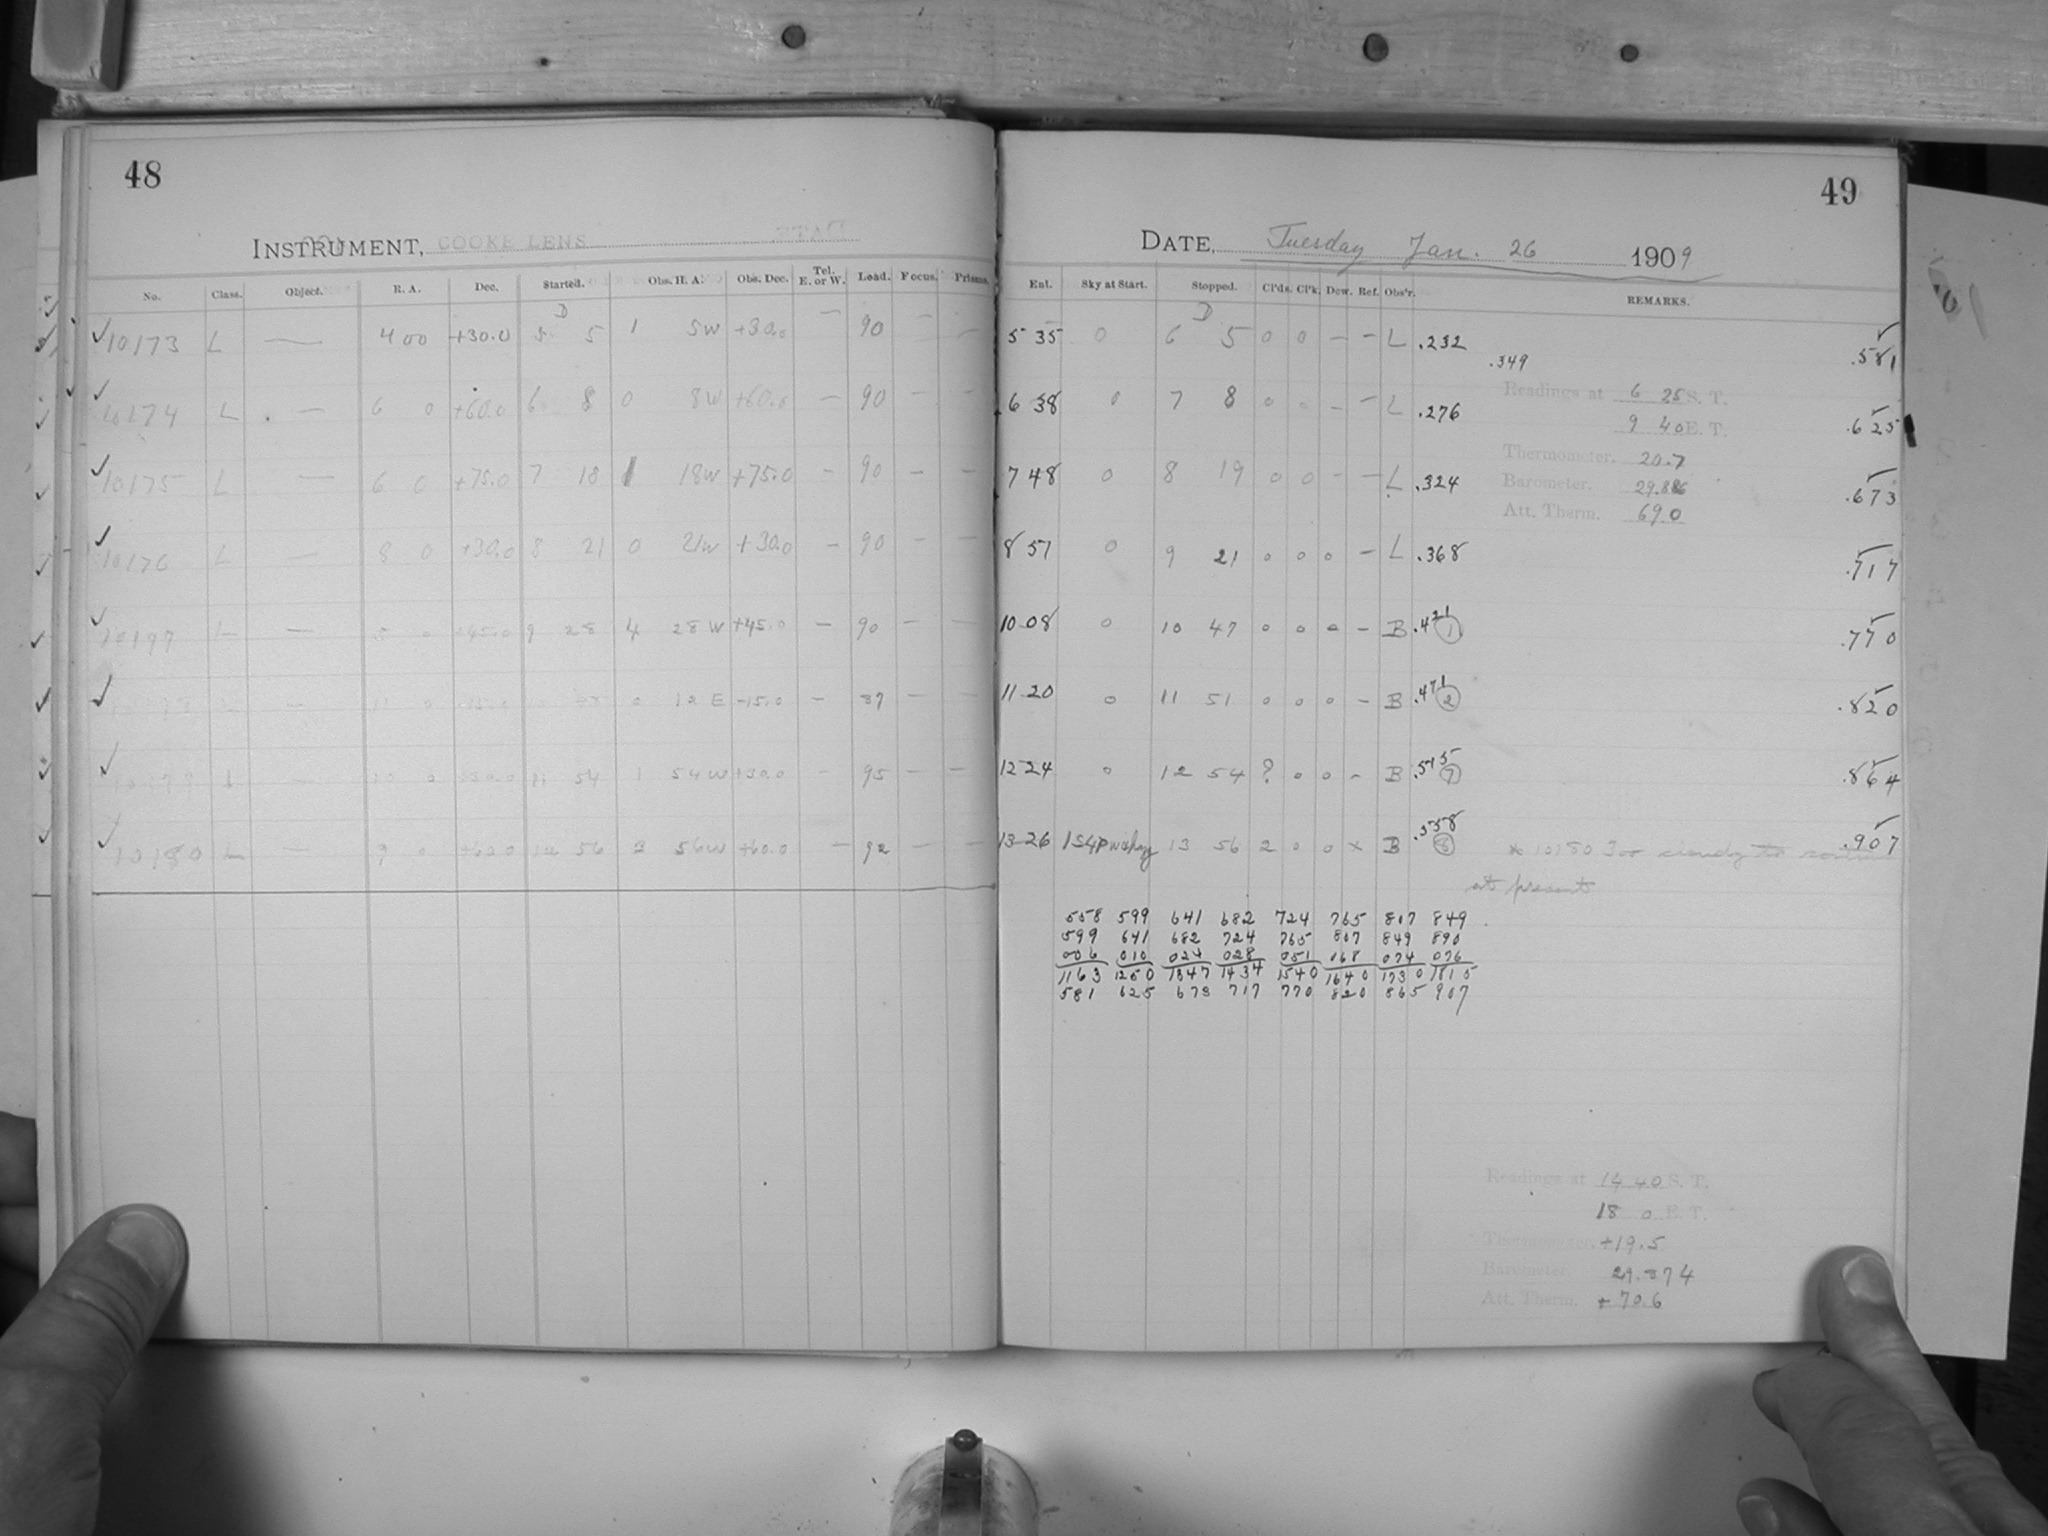 48
INSTRUMENT, COOKE LENS
No. Class. Object. R. A. Dec. Started. Obs. H. A. Obs. Dec. Tel. E. or W. Load. Focus. Prisms.
D
10173 L — 4 00 +30.0 5 5 1 5W +30.0 — 90 — —
10174 L — 6 0 +60.0 6 8 0 8W +60.0 — 90 — —
10175 L — 6 0 +75.0 7 18 1 18W +75.0 — 90 — —
10176 L — 8 0 +30.0 8 21 0 21W +30.0 — 90 — —
L — 5 0 +45.0 9 28 4 28W +45.0 — 90 — —
— 11 0 0 12 E -15.0 — 87 — —
— 10 0 +30.0 11 54 1 54W +30.0 — 95 — —
10180 L — 9 0 +60.0 12 56 3 56W +60.0 — 92 — —
49
DATE, Tuesday Jan. 26 1909
Ent. Sky at Start. Stopped. Cl'ds. Cl'k. Dew. Ref. Obs'r. REMARKS.
D
5 35 0 6 5 0 0 — — L .232 .581
.349
Readings at 6 25 S. T.
6 38 0 7 8 0 0 — — L .276 .625
9 40 E. T.
Thermometer. 20.7
7 48 0 8 19 0 0 — — L .324 .673
Barometer. 29.886
Att. Therm. 69.0
8 51 0 9 21 0 0 0 — L .368 .717
10 08 0 10 47 0 0 0 — B .421 1 .770
11 20 0 11 51 0 0 0 — B .471 2 .820
12 24 0 12 54 ? 0 0 — B .515 7 .864
13 26 13 56 2 0 0 x B .558 8 .907
* 10180 Too cloudy to
at present
558 599 641 682 724 765 807 849
599 641 682 724 765 807 849 890
006 010 024 028 051 068 074 076
1163 1250 1347 1434 1540 1640 1730 1815
581 625 673 717 770 820 865 907
Readings at 14 40 S. T.
18 0 E. T.
Thermometer. +19.5
Barometer. 29.874
Att. Therm. +70.6